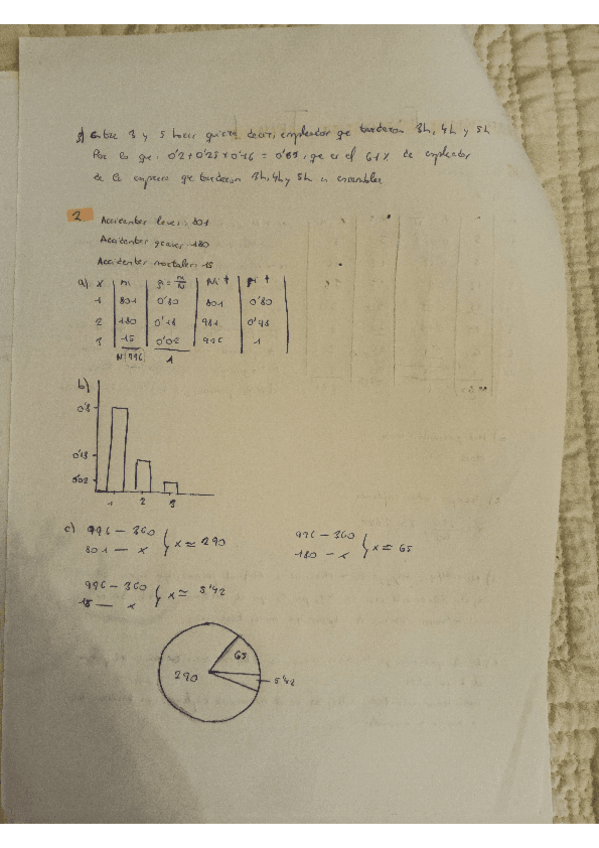 Entre 3 y 5 horas quiere decir, empleados que tardaron 3h, 4h y 5h
Por lo que: 0'2+0'25+0'16 = , que es el 61% de empleados
de la empresa que tardaron 3h, 4h y 5h en ensamblar
2
Accidentes leves: 801
Accidentes graves: 180
Accidentes mortales: 15
a) x ni
1 801 0'80 801 0'80
2 180 0'18 981 0'98
3 15 996 1
N 996 1
b)
0'8
0'18
0'02
1 2 3
c) 996 — 360 x ≈ 290
801 — x
996 — 360 x ≈ 65
180 — x
996 — 360 x ≈ 5'42
15 — x
65
290
5'42